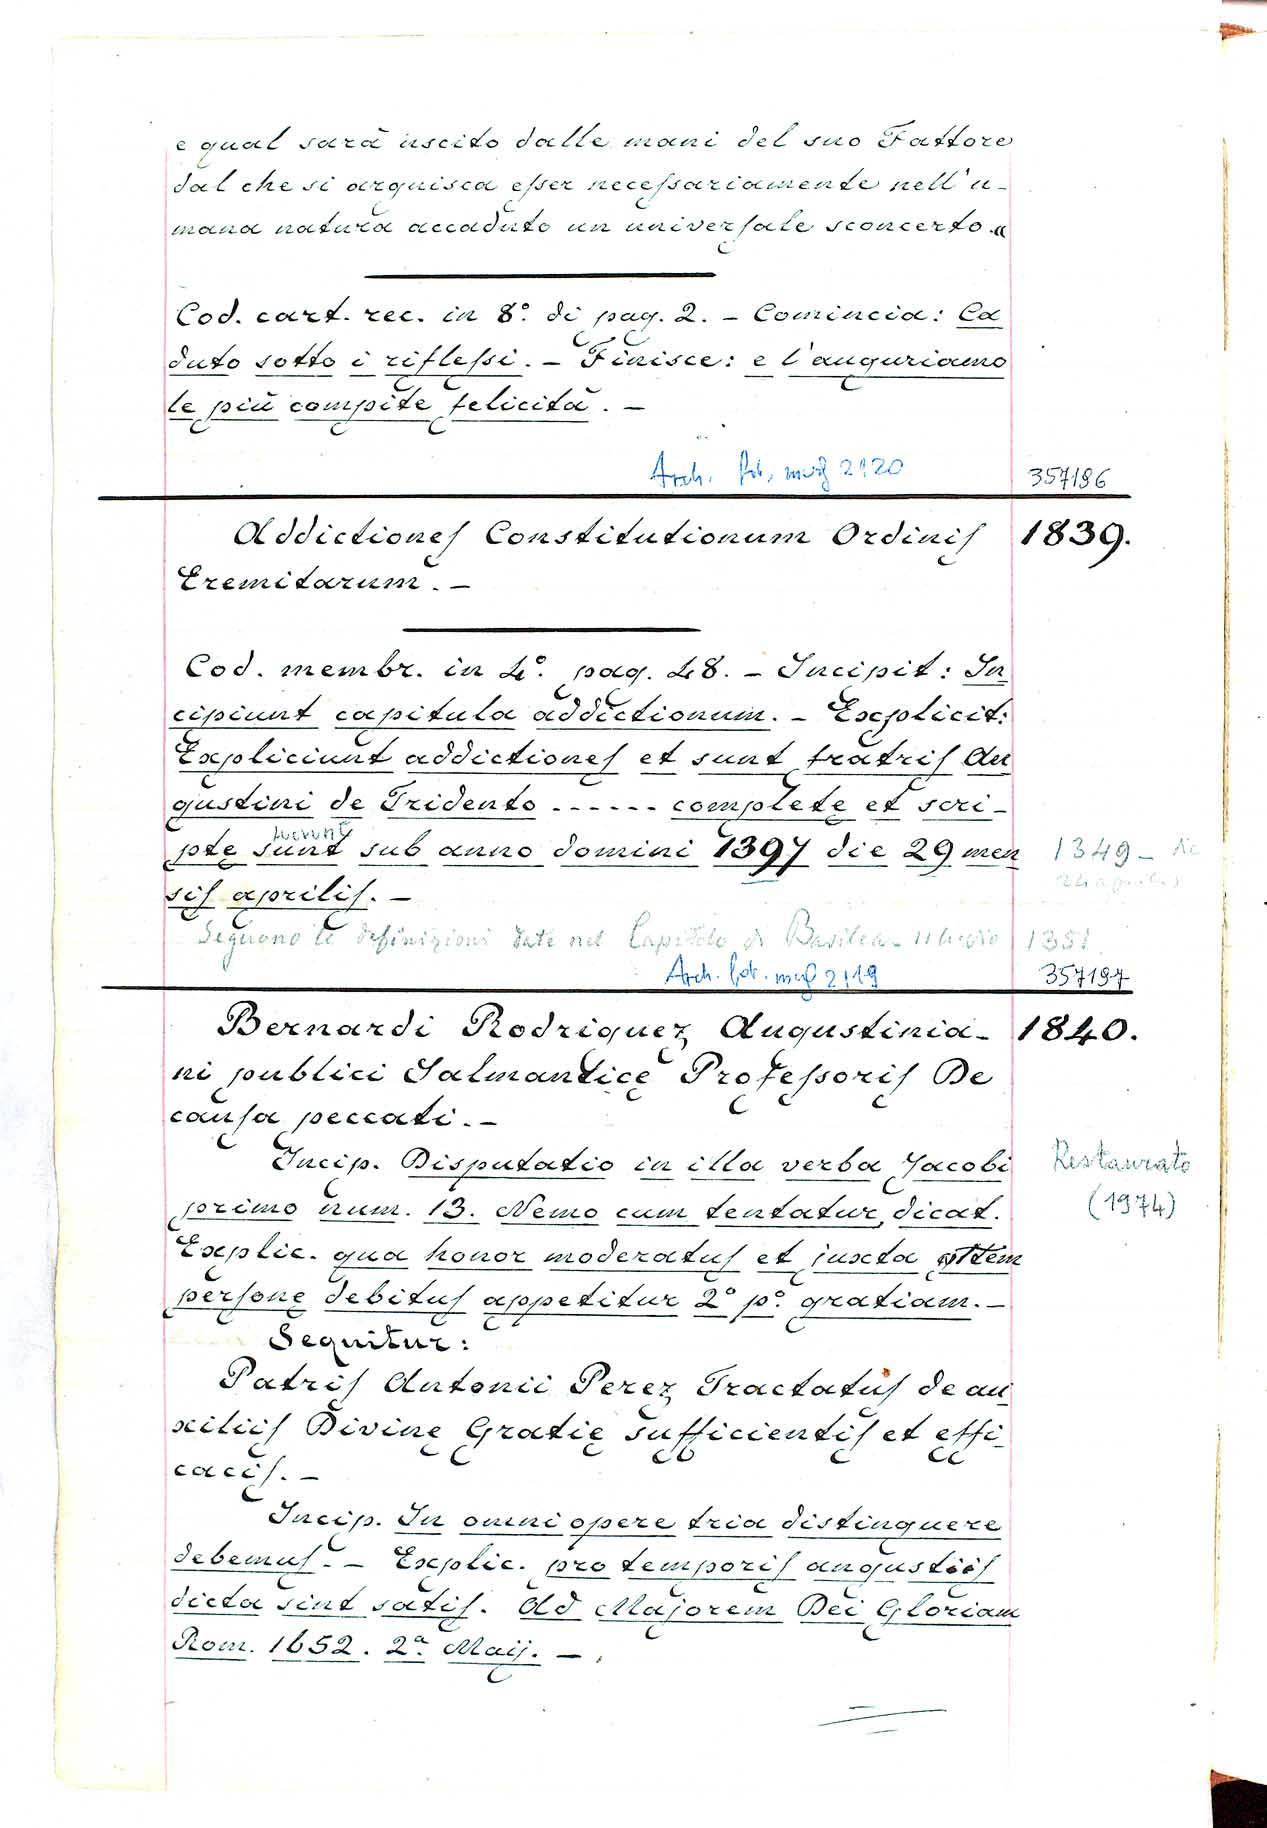 e qual sarà uscito dalle mani del suo Fattore
dal che si arguisca esser necessariamente nell'u-
mana natura accaduto un universale sconcerto.«
Cod. cart. rec. in 8.° di pag. 2. – Comincia: Ca
duto sotto i riflessi. – Finisce: e l'auguriamo
le più compite felicità. –
Arch. fot. neg 2120
357196
Addictiones Constitutionum Ordinis 1839.
Eremitarum. –
Cod. membr. in 4.° pag. 48. – Incipit: In
cipiunt capitula addictionum. – Explicit:
Expliciunt addictiones et sunt fratris Au
gustini de Tridento ...... complete et scri-
fuerunt
pte sunt sub anno domini 1397 die 29 men 1349 –
sis aprilis. – 24 aprilis
Seguono le definizioni date nel Capitolo di Basilea – 11 luglio 1351
Arch. fot. neg 2119 357197
Bernardi Rodriguez Augustinia- 1840.
ni publici Salmanticę Professoris De
causa peccati. –
Incip. Disputatio in illa verba Jacobi Restaurato
primo num. 13. Nemo cum tentatur, dicat. (1974)
Explic. qua honor moderatus et juxta
personę debitus appetitur 2° p°. gratiam. –
Sequitur:
Patris Antonii Perez Tractatus de au
xiliis Divinę Gratię sufficientis et effi-
cacis. –
Incip. In omni opere tria distinguere
debemus. – Explic. pro temporis angustiis
dicta sint satis. Ad Majorem Dei Gloriam
Rom. 1652. 2.ª Maij. –